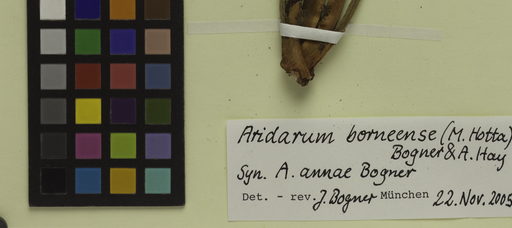 Aridarum borneense (M. Hotta)
Bogner & A. Hay
Syn. A. annae Bogner
Det. - rev. J. Bogner München 22. Nov. 2005